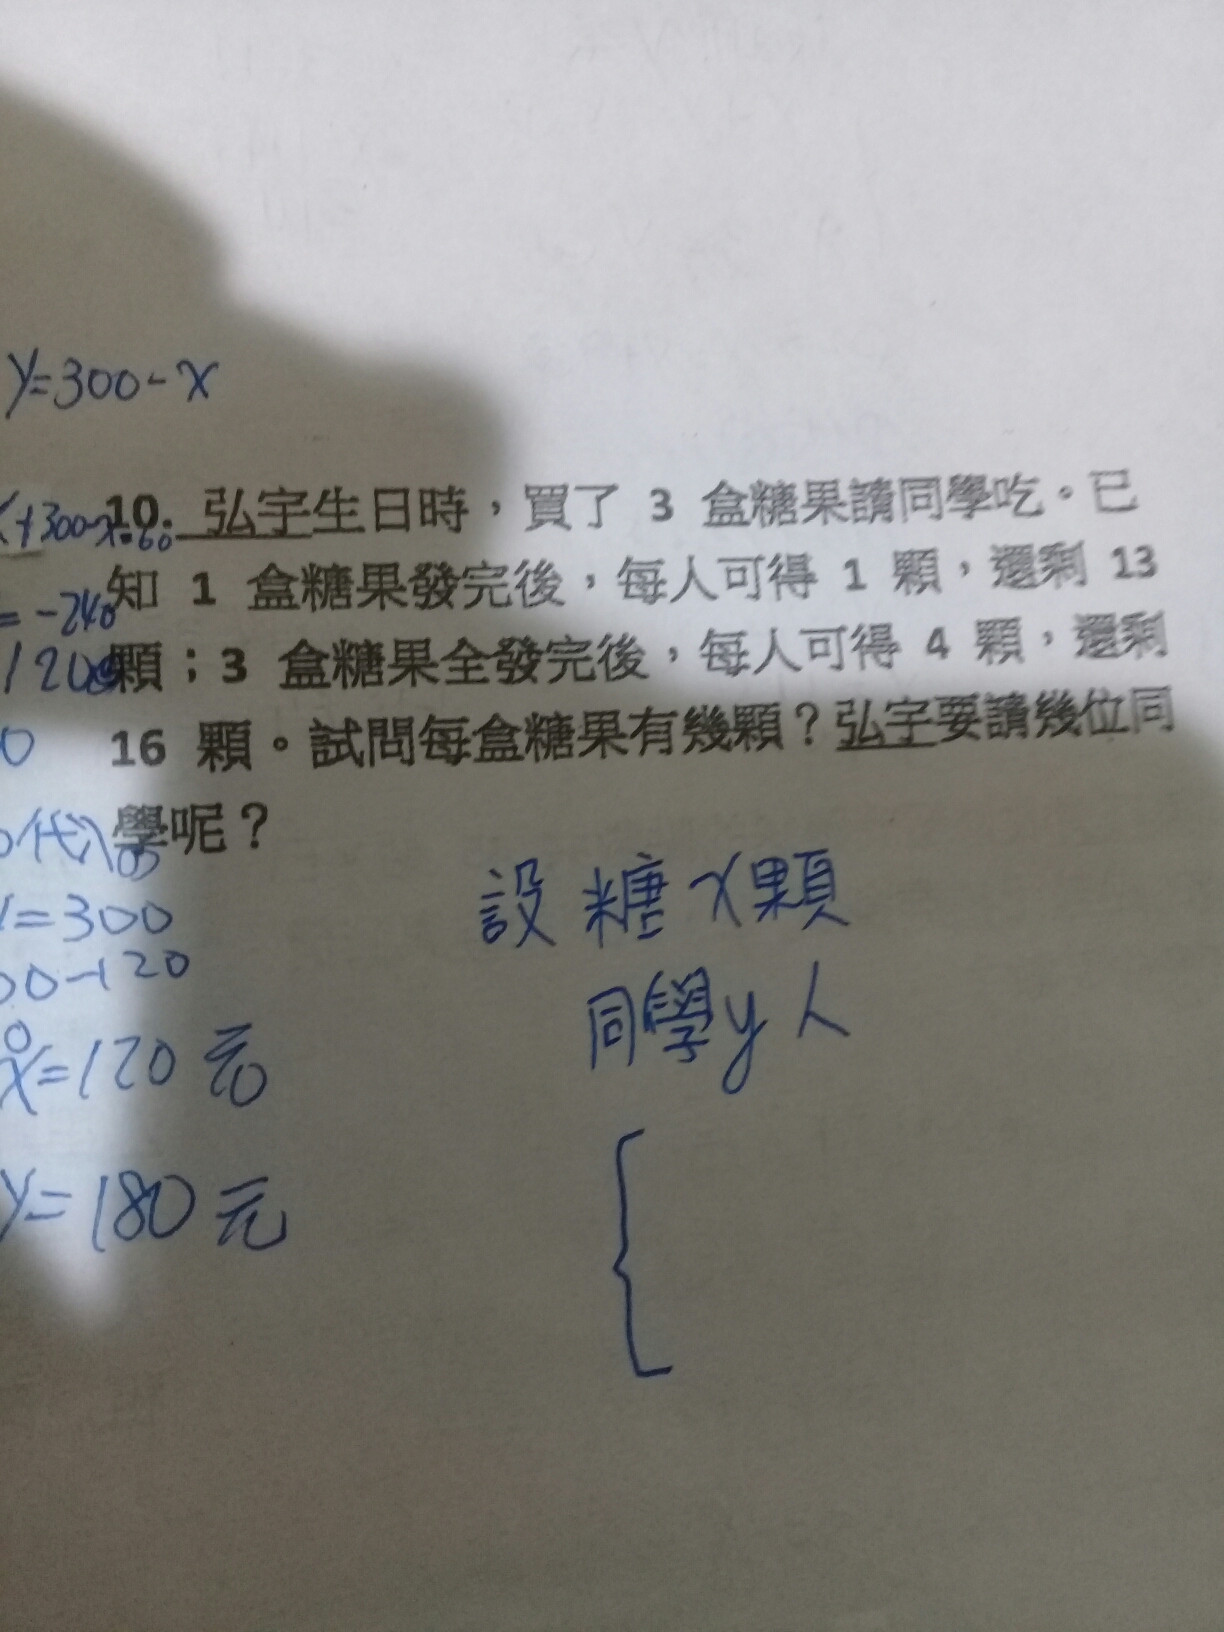 y=300-x
10. 弘宇生日時，買了 3 盒糖果請同學吃。已
知 1 盒糖果發完後，每人可得 1 顆，還剩 13
顆；3 盒糖果全發完後，每人可得 4 顆，還剩
16 顆。試問每盒糖果有幾顆？弘宇要請幾位同
學呢？
+300-x
= -240
120
0
代入
=300
00-120
x=120元
y=180元
設糖x顆
同學y人
{